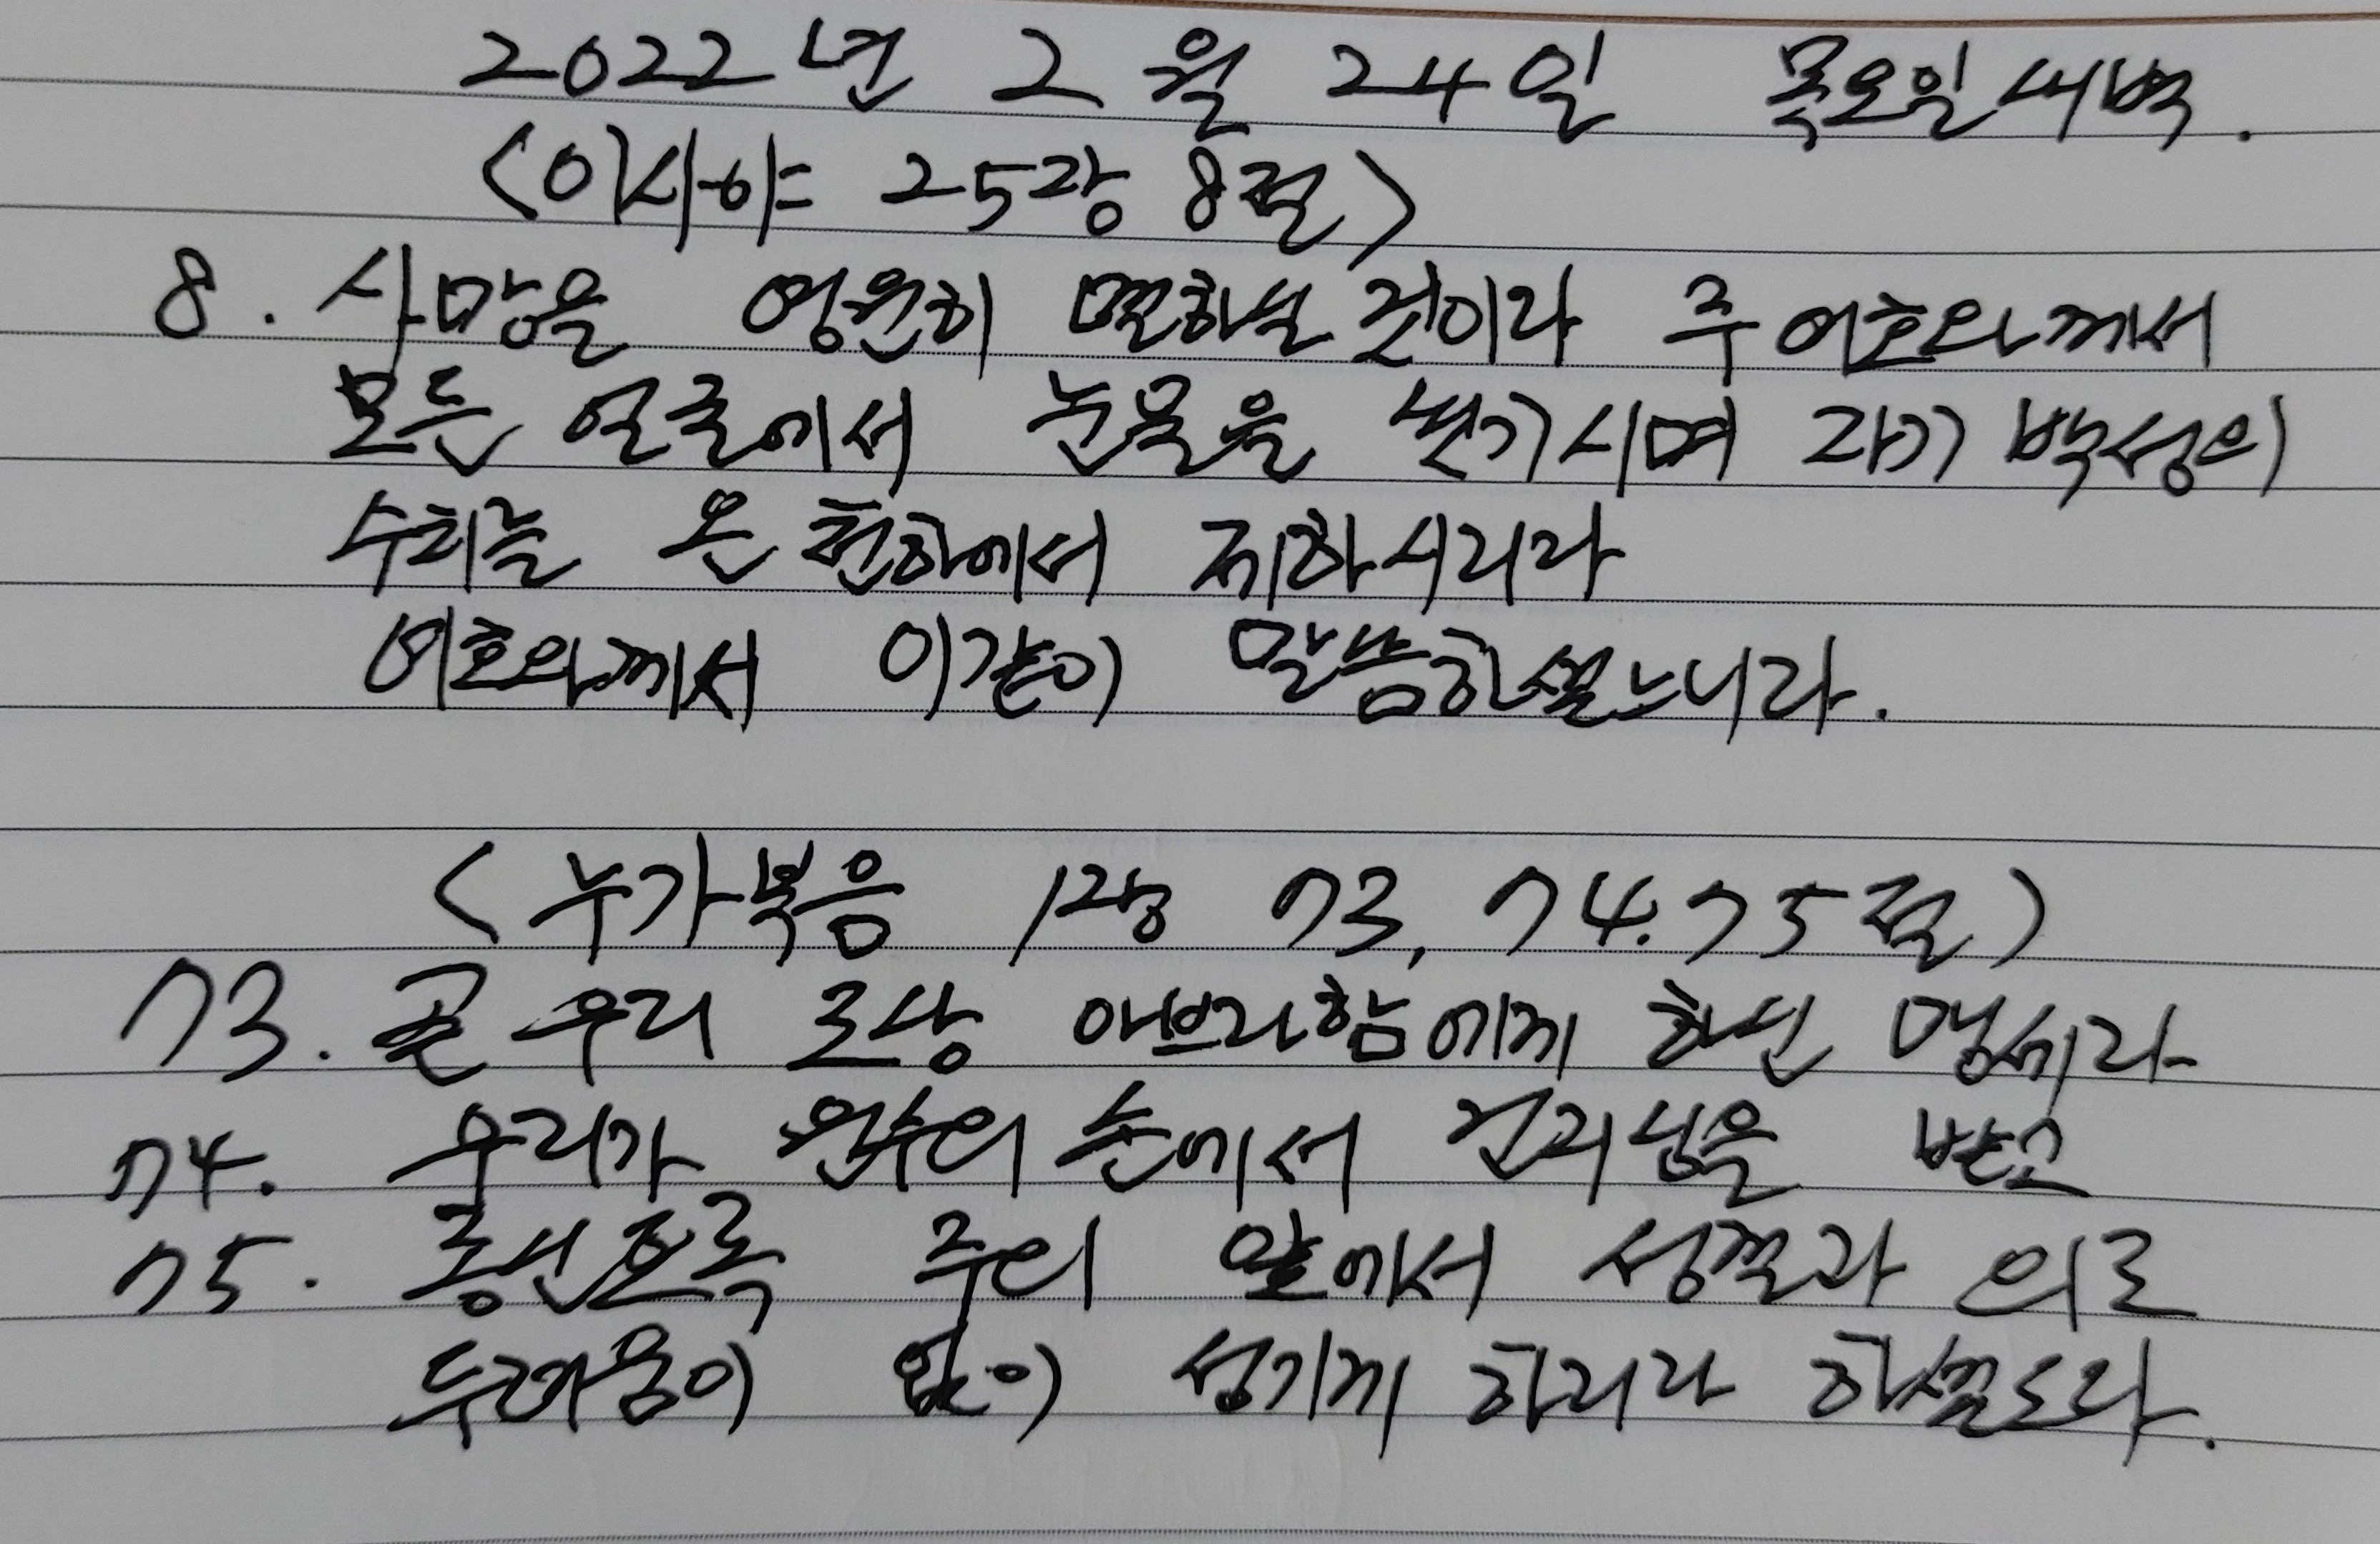 2022년 2월 24일 목요일새벽.
<이사야 25장 8절>
8. 사망을 영원히 멸하실 것이라 주 여호와께서
모든 얼굴에서 눈물을 씻기시며 자기 백성의
수치를 온 천하에서 제하시리라
여호와께서 이같이 말씀하셨느니라.
<누가복음 1장 73, 74.75절>
73. 곧 우리 조상 아브라함에게 하신 맹세라
74. 우리가 원수의 손에서 건지심을 받고
75. 종신토록 주의 앞에서 성결과 의로
두려움이 없이 섬기게 하리라 하셨도다.